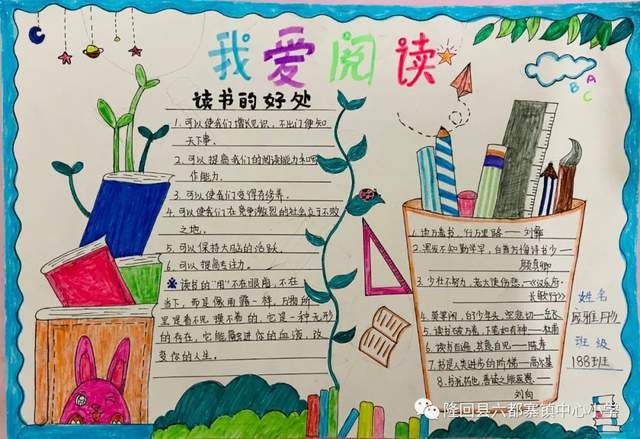 我爱阅读
读书的好处
1. 可以使我们增长见识，不出门便知
天下事。
2. 可以提高我们的阅读能力和写
作能力。
3. 可以使我们变得有修养。
4. 可以使我们在竞争激烈的社会立于不败
之地。
5. 可以保持大脑的活跃。
6. 可以提高专注力。
※ 读书的"用"不在眼前，不在
当下，而是像雨露一样，万物所
里是看不见 摸不着的，它是一种无形
的存在，它能融进你的血液，改
变你的人生。
A
B
C
1. 读万卷书，行万里路 —— 刘彝
2. 黑发不知勤学早，白首方悔读书少 ——
颜真卿
3. 少壮不努力，老大徒伤悲 —《汉乐府·
长歌行》
4. 莫等闲，白了少年头，空悲切 — 岳飞
5. 读书破万卷，下笔如有神 —— 杜甫
6. 读书百遍，其义自见 —— 陈寿
7. 书是人类进步的阶梯 — 高尔基
8. 书犹药也，善读之能医愚 ——
刘向
姓名
班级
188班
隆回县六都寨镇中心小学